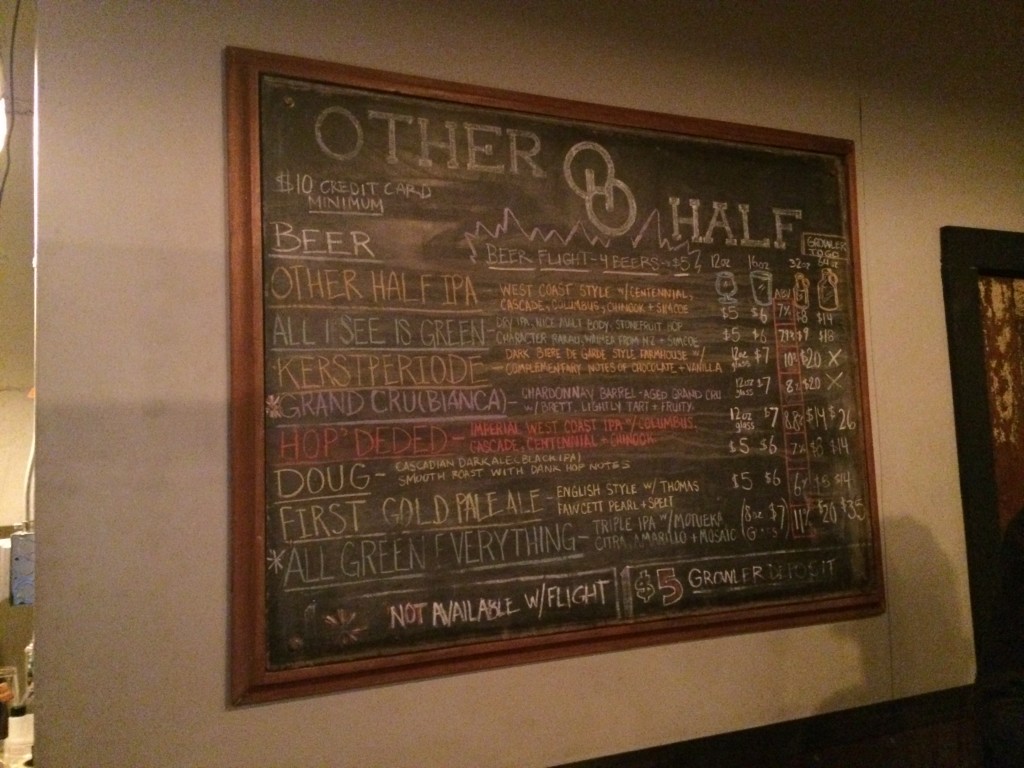 OTHER
HALF
$10 CREDIT CARD
MINIMUM
BEER
BEER FLIGHT-4 BEERS-$5
12oz 16oz 32oz
GROWLER
TO GO
64oz
OTHER HALF IPA WEST COAST STYLE W/CENTENNIAL,
CASCADE, COLUMBUS, CHINOOK + SIMCOE
$5 $6 7% $8 $14
ALL I SEE IS GREEN- DRY IPA, NICE MALT BODY, STONEFRUIT HOP
CHARACTER FROM NZ + SIMCOE
$5 $6 $9 $18
KERSTPERIODE- DARK BIERE DE GARDE STYLE FARMHOUSE W/
COMPLEMENTARY NOTES OF CHOCOLATE + VANILLA
12oz
glass $7 10% $20 X
*GRAND CRU (BIANCA)- CHARDONNAY BARREL-AGED GRAND CRU
W/ BRETT, LIGHTLY TART + FRUITY
12oz
glass $7 8% $20 X
HOP DEDED- IMPERIAL WEST COAST IPA W/COLUMBUS,
CASCADE, CENTENNIAL + CHINOOK
12oz
glass $7 8.8% $14 $26
DOUG- CASCADIAN DARK ALE (BLACK IPA)
SMOOTH ROAST WITH DANK HOP NOTES
$5 $6 7% $8 $14
FIRST GOLD PALE ALE ENGLISH STYLE W/ THOMAS
FAWCETT PEARL + SPELT
$5 $6 6% $14
*ALL GREEN EVERYTHING- TRIPLE IPA W/MOTUEKA
CITRA, AMARILLO + MOSAIC
$7 11% $20 $35
* NOT AVAILABLE W/FLIGHT
$5 GROWLER DEPOSIT